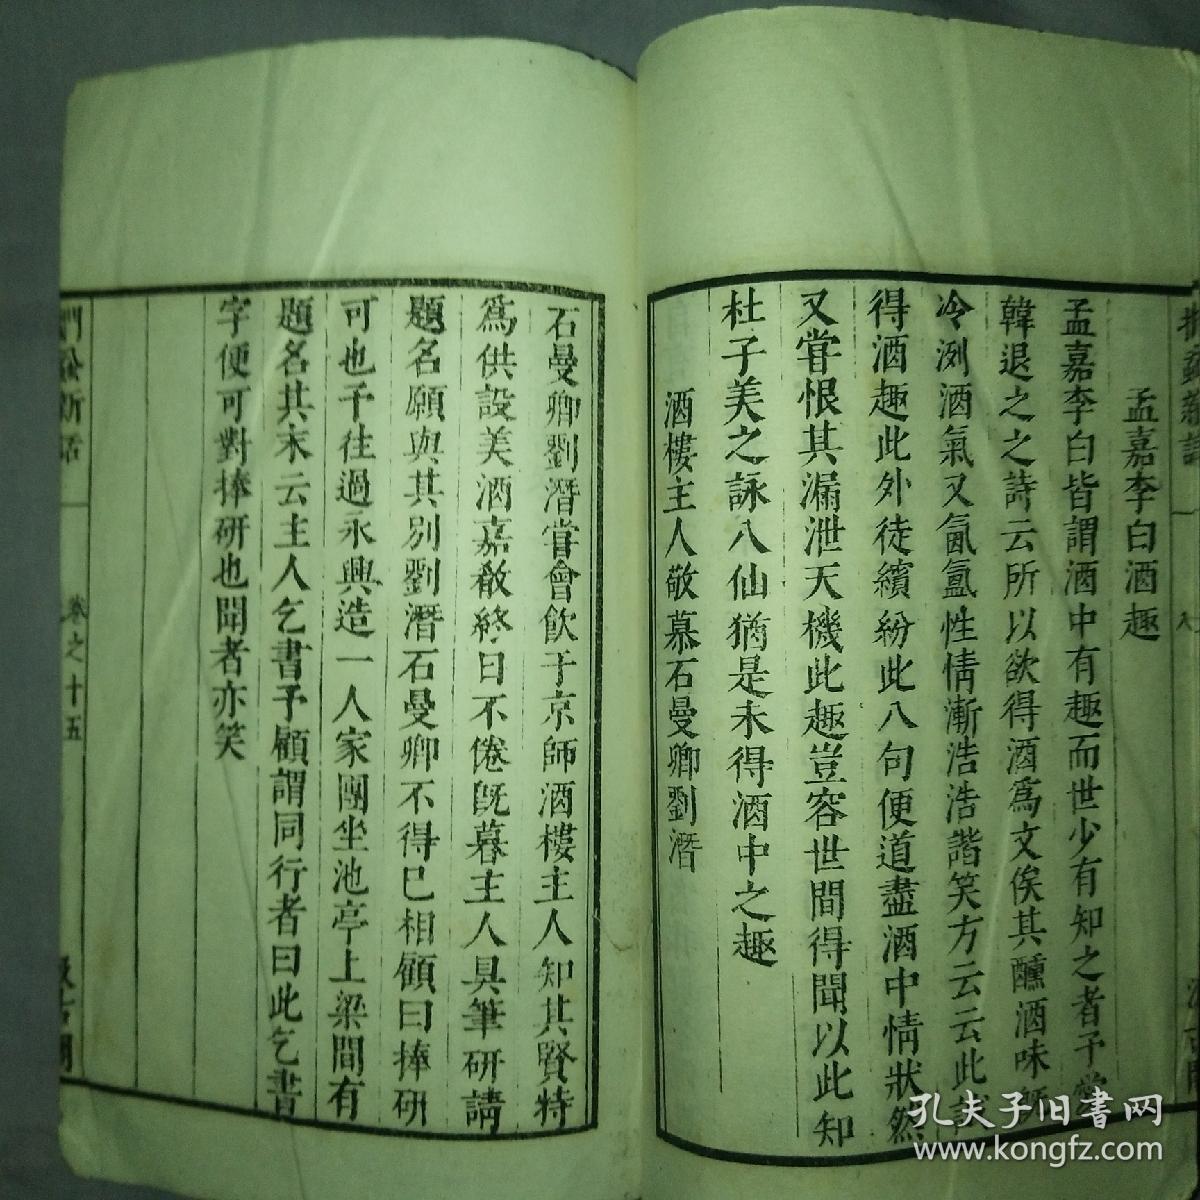 捫蝨新話
八
孟嘉李白酒趣
孟嘉李白皆謂酒中有趣而世少有知之者予嘗
韓退之之詩云所以欲得酒爲文俟其醺酒味
冷冽酒氣又氤氳性情漸浩浩諧笑方云云此
得酒趣此外徒繽紛此八句便道盡酒中情狀然
又嘗恨其漏泄天機此趣豈容世間得聞以此知
杜子美之詠八仙猶是未得酒中之趣
酒樓主人敬慕石曼卿劉潛
石曼卿劉潛嘗會飲于京師酒樓主人知其賢特
爲供設美酒嘉殽終日不倦旣暮主人具筆研請
題名願與其別劉潛石曼卿不得已相顧曰捧研
可也予往過永興造一人家團坐池亭上梁間有
題名其末云主人乞書予顧謂同行者曰此乞書
字便可對捧研也聞者亦笑
卷之十五
孔夫子旧書网
www.kongfz.com